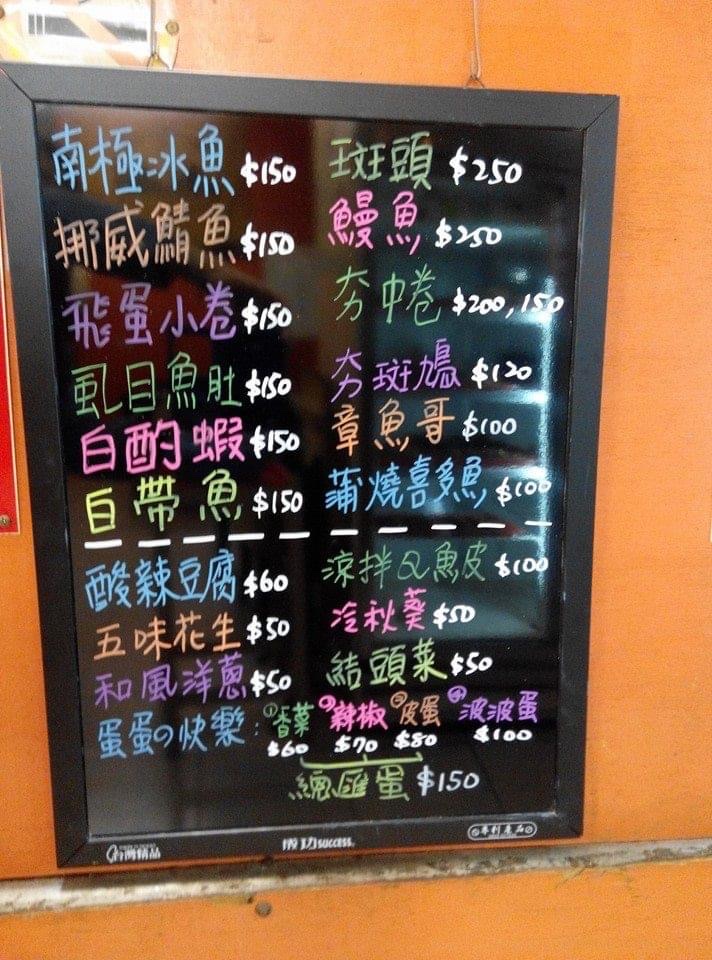 南極冰魚 $150
挪威鯖魚 $150
飛蛋小卷 $150
虱目魚肚 $150
白酌蝦 $150
白帶魚 $150
斑頭 $250
鰻魚 $250
夯中卷 $200,150
夯斑鳩 $120
章魚哥 $100
蒲燒喜多魚 $100
酸辣豆腐 $60
五味花生 $50
和風洋蔥 $50
涼拌Q魚皮 $100
冷秋葵 $50
結頭菜 $50
蛋蛋の快樂:①香菜 ②辣椒 ③皮蛋 ④波波蛋
$60 $70 $80 $100
總匯蛋 $150
台灣精品 成功success 專利產品